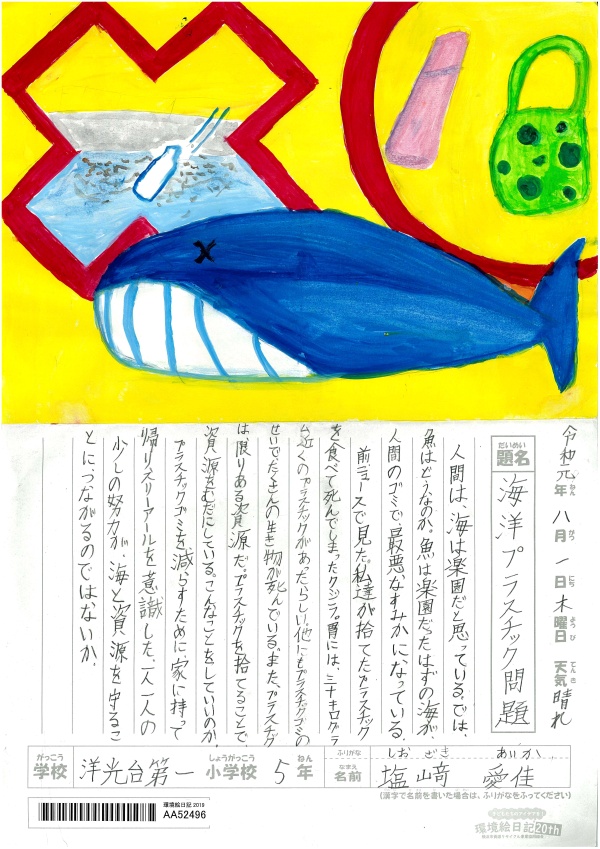 令和元年 八月 一日 木曜日 天気 晴れ
ねん がつ にち ようび てんき
だいめい
題名 海洋プラスチック問題
人間は、海は楽園だと思っている。では、
魚はどうなのか。魚は楽園だったはずの海が、
人間のゴミで、最悪なすみかになっている。
前、ニュースで見た。私達が捨てたプラスチック
を食べて死んでしまったクジラ。胃には、三十キログラ
ム近くのプラスチックがあったらしい。他にもプラスチックゴミの
せいでたくさんの生き物が死んでいる。また、プラスチック
は限りある資源だ。プラスチックを捨てることで、
資源をむだにしている。こんなことをしていいのか。
プラスチックゴミを減らすために家に持って
帰りスリーアールを意識した、一人一人の
少しの努力が、海と資源を守るこ
とにつながるのではないか。
がっこう しょうがっこう ねん ふりがな しお ざき あいか
学校 洋光台第一 小学校 5年 なまえ 名前 塩﨑 愛佳
(漢字で名前を書いた場合は、ふりがなをふってください)
環境絵日記 2019
AA52496
環境絵日記20th